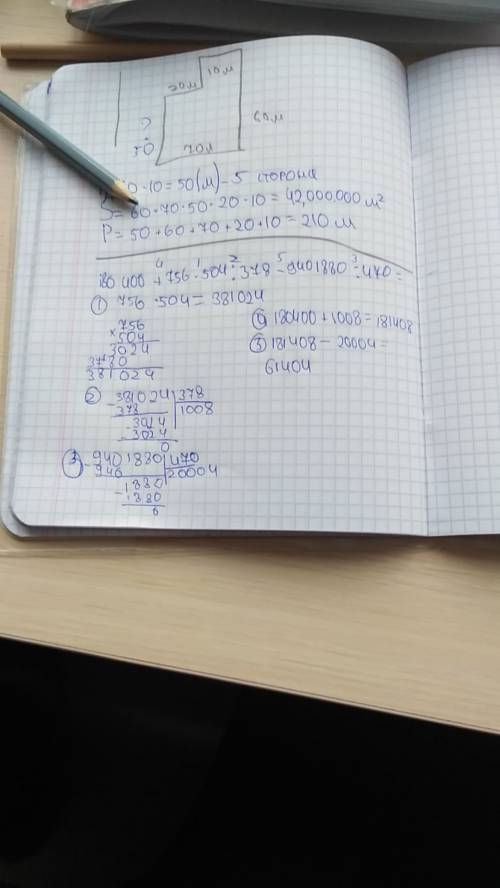 10м
20м
?
60м
50
70м
10 = 50(м) - 5 сторона
S = 60 · 70 · 50 · 20 · 10 = 42,000.000 м²
P = 50 + 60 + 70 + 20 + 10 = 210 м
4 1 2 5 3
180 400 + 756 · 504 : 378 - 9401880 : 470 =
① 756 · 504 = 381024
756
× 504
3024
3780
381024
② 381024 | 378
- 378 | 1008
- 3024
3024
0
③ - 9401880 | 470
940 | 20004
- 1880
1880
0
④ 180400 + 1008 = 181408
⑤ 181408 - 20004 =
61404